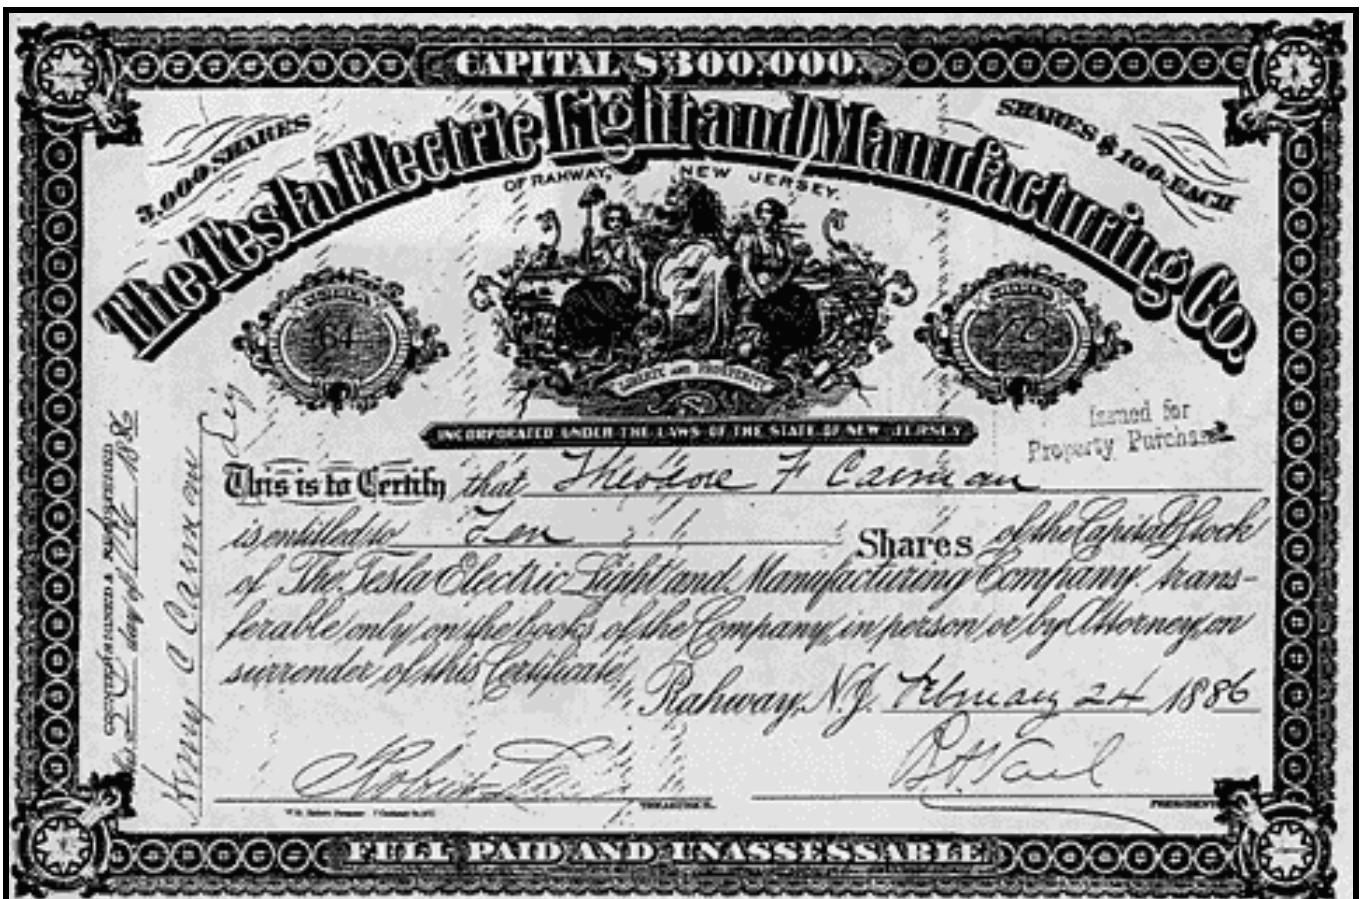 CAPITAL $300.000.
3,000 SHARES
SHARES $100. EACH
The Tesla Electric Light and Manufacturing Co.
OF RAHWAY, NEW JERSEY.
64
10
LIBERTY AND PROSPERITY
Issued for
Property Purchase
INCORPORATED UNDER THE LAWS OF THE STATE OF NEW JERSEY
This is to Certify that Theodore F Carman
is entitled to Ten Shares of the Capital Stock
of The Tesla Electric Light and Manufacturing Company trans-
ferable only on the books of the Company, in person or by Attorney, on
surrender of this Certificate.
Rahway, N.J. February 24 1886
Robert Lane
TREASURER.
B.A. Vail
PRESIDENT
COUNTERSIGNED & REGISTERED
day of 1886
Henry C Carman
FULL PAID AND UNASSESSABLE